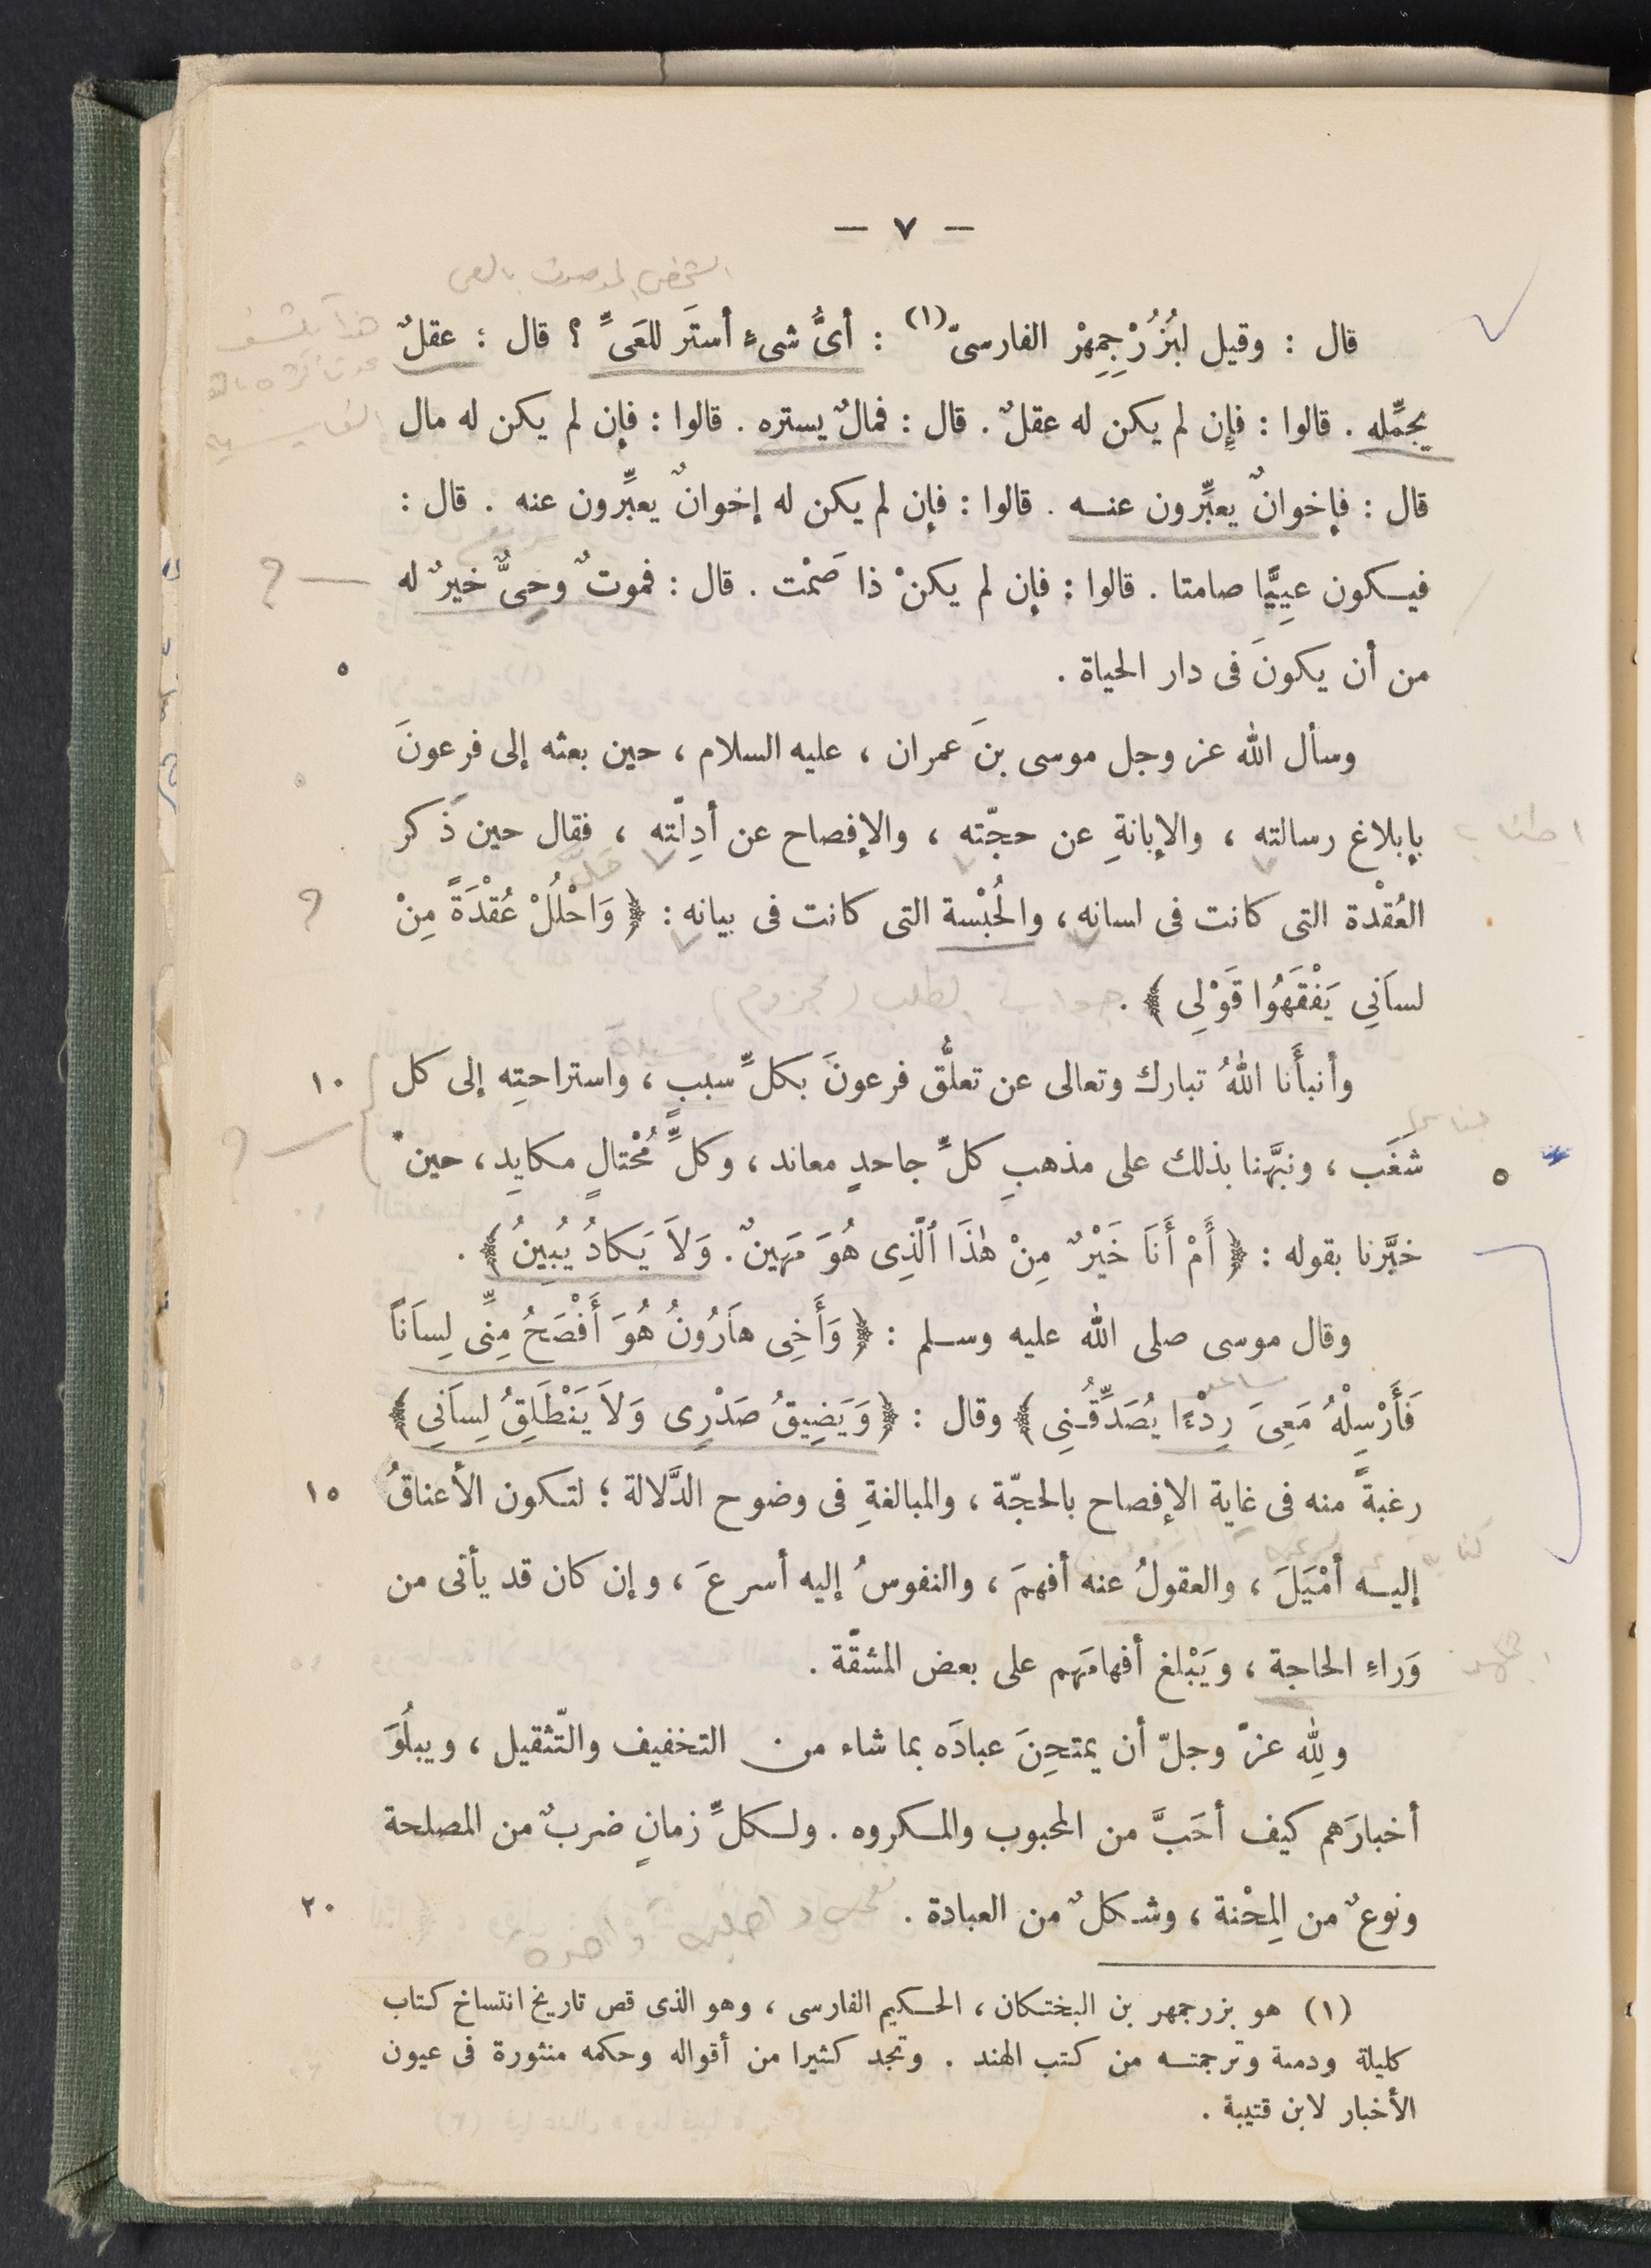 — ٧ —
قال : وقيل لبُزُرْجِمِهْرْ الفارسىّ (١) : أىُّ شىء أستَر للعَىِّ ؟ قال : عقلٌ
يجمِّله . قالوا : فإن لم يكن له عقلٌ . قال : فمالٌ يستره . قالوا : فإن لم يكن له مال
قال : فإخوانٌ يعبِّرون عنه . قالوا : فإن لم يكن له إخوانٌ يعبِّرون عنه . قال :
فيكون عيِيًّا صامتا . قالوا : فإن لم يكنْ ذا صَمْت . قال : فموتٌ وحِىٌّ خيرٌ له
من أن يكونَ فى دار الحياة . ٥
وسأل الله عز وجل موسى بنَ عمران ، عليه السلام ، حين بعثه إلى فرعونَ
بإبلاغ رسالته ، والإبانةِ عن حجّته ، والإفصاح عن أدِلّته ، فقال حين ذَكر
العُقْدة التى كانت فى اسانه ، والُحبْسة التى كانت فى بيانه : ﴿ وَاحْلُلْ عُقْدَةً مِنْ ؟
لسَانِي يَفْقَهُوا قَوْلِى ﴾ . جواب الطلب (مجزوم)
وأنبأَنا اللهُ تبارك وتعالى عن تعلُّق فرعونَ بكلِّ سببٍ ، واستراحتِه إلى كل ١٠
شَغَب ، ونبَّهنا بذلك على مذهبِ كلِّ جاحدٍ معاند ، وكلِّ مُحْتالٍ مكايِد ، حين ٥
خبَّرنا بقوله : ﴿ أَمْ أَنَا خَيْرٌ مِنْ هٰذَا ٱلَّذِى هُوَ مَهِينٌ . وَلاَ يَكادُ يُبِينُ ﴾ .
وقال موسى صلى الله عليه وسلم : ﴿ وَأَخِى هاَرُونُ هُوَ أَفْصَحُ مِنِّى لِسَانًا
فَأَرْسِلْهُ مَعِىَ رِدْءًا يُصَدِّقُنِى ﴾ وقال : ﴿ وَيَضِيقُ صَدْرِى وَلاَ يَنْطَلِقُ لِسَانِي ﴾
رغبةً منه فى غاية الإفصاح بالحجّة ، والمبالغةِ فى وضوح الدَّلالة ؛ لتكون الأعناقُ ١٥
إليه أمْيَلَ ، والعقولُ عنه أفهمَ ، والنفوسُ إليه أسرعَ ، وإن كان قد يأتى من
وَراءِ الحاجة ، ويَبْلغ أفهامَهم على بعض المشقّة .
ولله عزّ وجلّ أن يمتحِنَ عبادَه بما شاء من التخفيف والتّثقيل ، ويبلُوَ
أخبارَهم كيف أحَبَّ من المحبوب والمكروه . ولكلِّ زمانٍ ضربٌ من المصلحة
ونوعٌ من المِحْنة ، وشكلٌ من العبادة . ٢٠
(١) هو بزرجمهر بن البختكان ، الحكيم الفارسى ، وهو الذى قص تاريخ انتساخ كتاب
كليلة ودمنة وترجمته من كتب الهند . وتجد كثيرا من أقواله وحكمه منثورة فى عيون
الأخبار لابن قتيبة .